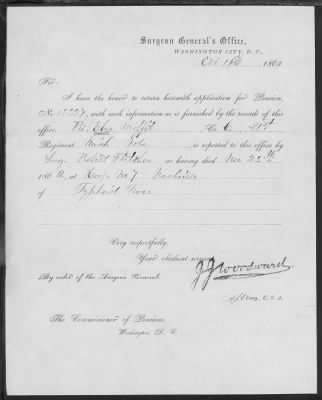 Surgeon General's Office,
WASHINGTON CITY, D. C.,
Oct 186
Sir:
I have the honor to return herewith application for Pension,
No. with such information as is furnished by the records of this
office. Co. 21st
Regiment Mich Vols. is reported to this office by
Surg. Robert Fletcher as having died Nov 25th
1862 at Hosp. No 7 Nashville
of Typhoid Fever
Very respectfully,
Your obedient servant,
By order of the Surgeon General:
J J Woodward
U. S. A.
The Commissioner of Pensions,
Washington, D. C.